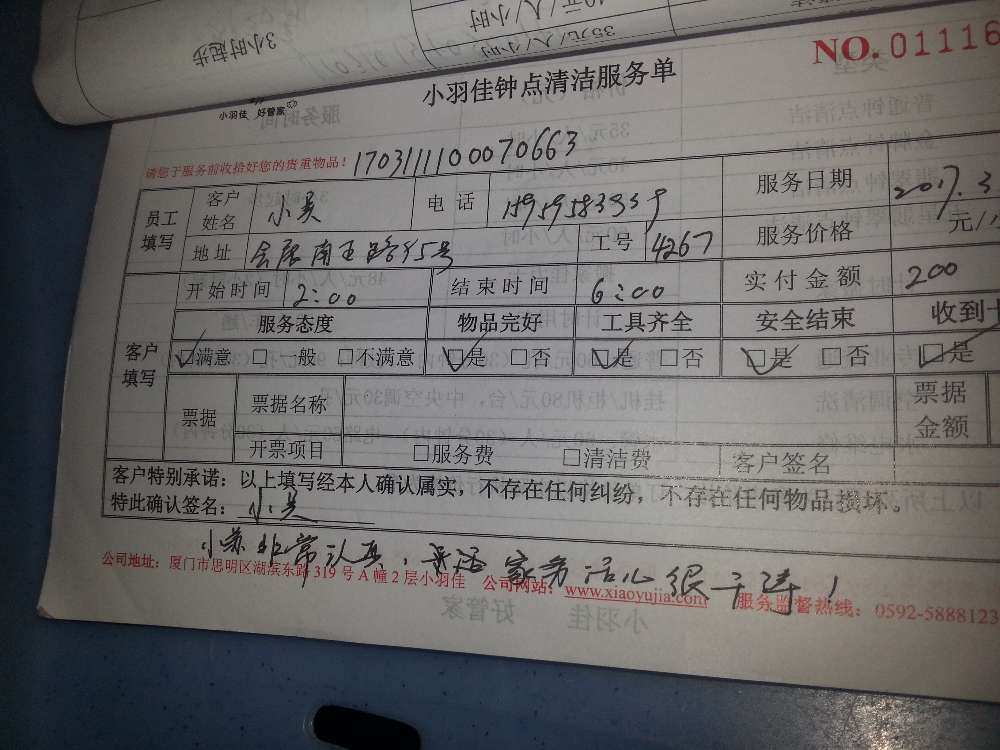 3小时起步
35元/人/小时
NO.01116
小羽佳 好管家
小羽佳钟点清洁服务单
请您于服务前收拾好您的贵重物品！170311110007​0663
员工填写 客户姓名 小吴 电话 15959583939 服务日期 2017.3
地址 南 路95号 工号 4267 服务价格 元/
客户填写 开始时间 2:00 结束时间 6:00 实付金额 200
服务态度 物品完好 工具齐全 安全结束 收到
☑满意 □一般 □不满意 ☑是 □否 ☑是 □否 ☑是 □否 ☑是
票据 票据名称 票据金额
开票项目 □服务费 □清洁费 客户签名
客户特别承诺：以上填写经本人确认属实，不存在任何纠纷，不存在任何物品损坏。
特此确认签名：小吴
小苏非常认真， 家务活儿很干净！
公司地址：厦门市思明区湖滨东路319号A幢2层小羽佳 公司网站：www.xiaoyujia.com 服务监督热线：0592-5888123